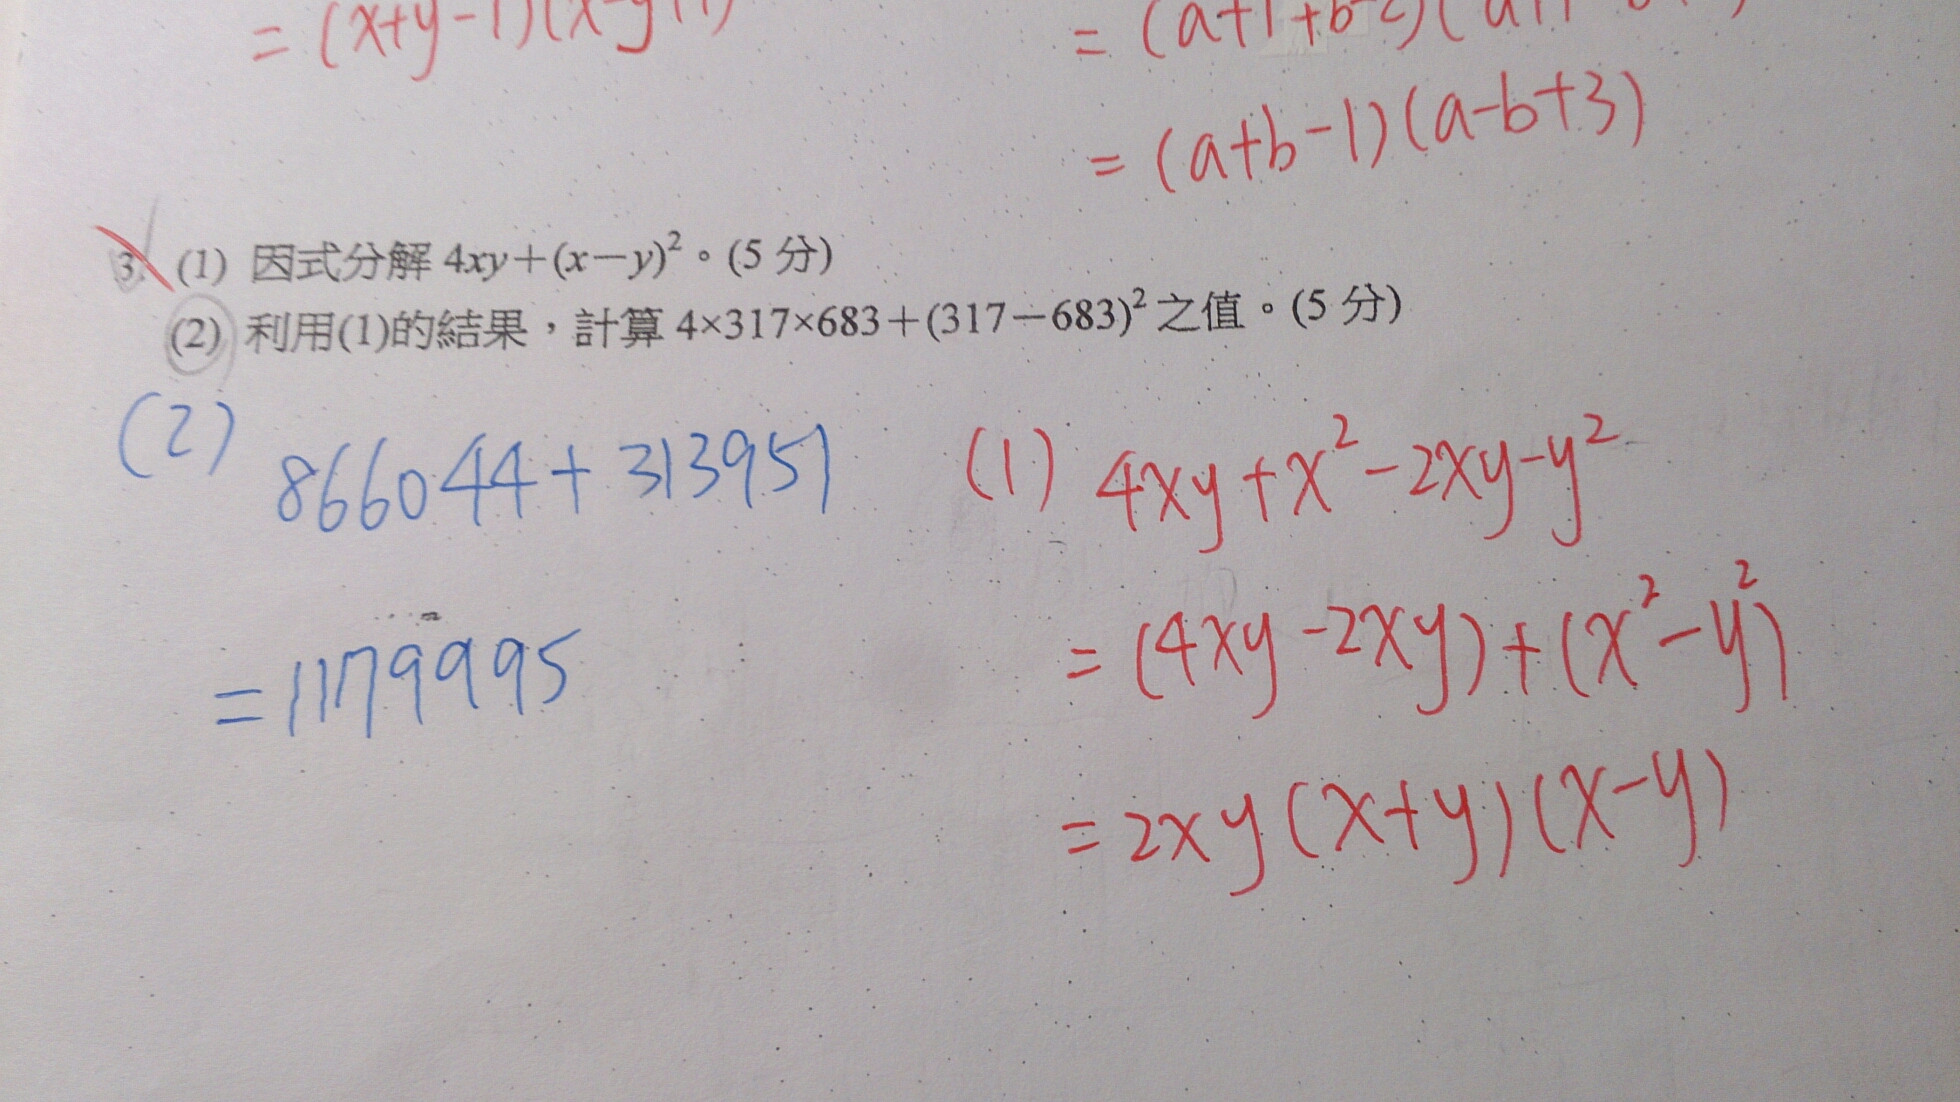 = (x+y-1)(x-y+1)
= (a+1+b-2)(
= (a+b-1)(a-b+3)
3. (1) 因式分解 4xy+(x-y)²。(5 分)
(2) 利用(1)的結果，計算 4×317×683+(317-683)² 之值。(5 分)
(2)
866044+313951
=1179995
(1) 4xy+x²-2xy-y²
= (4xy-2xy)+(x²-y²)
= 2xy(x+y)(x-y)